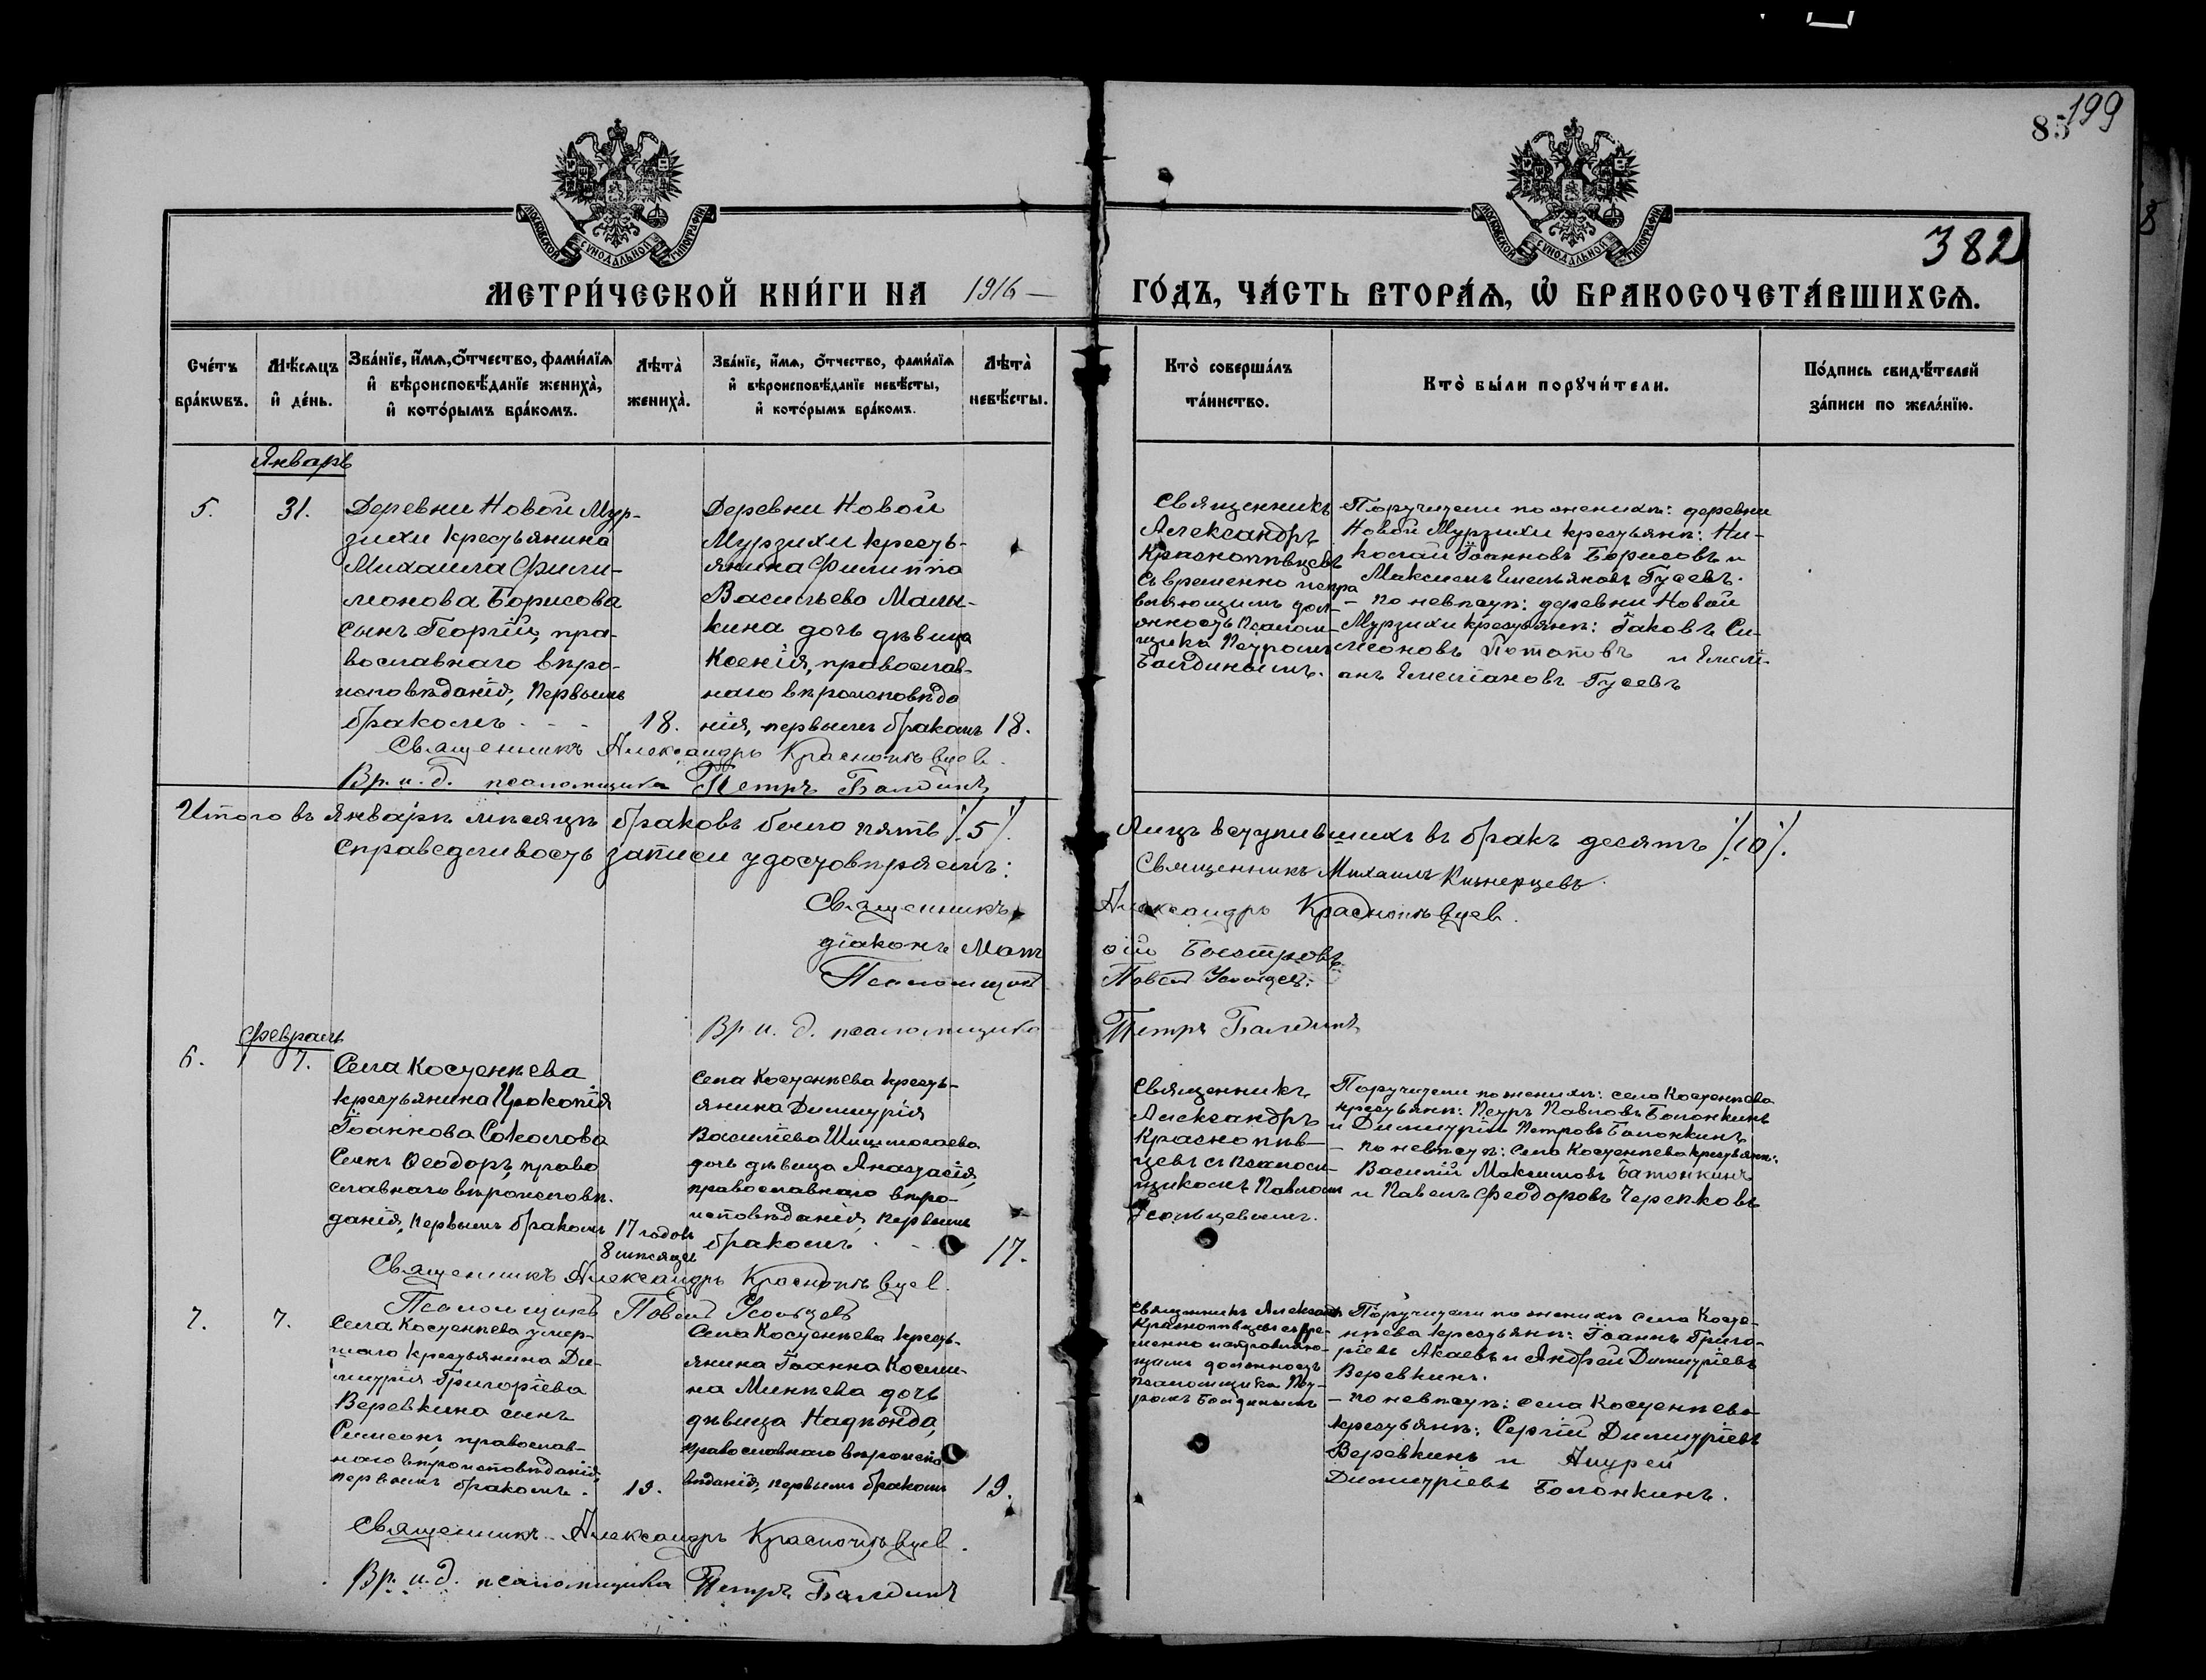 199
85
382
МОСКОВСКОЙ СѴНОДАЛЬНОЙ ТИПОГРАФІИ
МОСКОВСКОЙ СѴНОДАЛЬНОЙ ТИПОГРАФІИ
МЕТРИ́ЧЕСКОЙ КНИ́ГИ НА 1916 —
ГО́ДЪ, ЧА́СТЬ ВТОРА́Ѧ, Ѡ БРАКОСОЧЕТА́ВШИХСѦ.
Сче́тъ бра́кѡвъ.
Мѣ́сяцъ и҆ де́нь.
Зва́нїе, и҆́мѧ, ѻ҆́тчество, фами́лїѧ
и҆ вѣроисповѣ́данїе жениха̀,
и҆ кото́рымъ бра́комъ.
Лѣта̀ жениха̀.
Зва́нїе, и҆́мѧ, ѻ҆́тчество, фами́лїѧ
и҆ вѣроисповѣ́данїе невѣ́сты,
и҆ кото́рымъ бра́комъ.
Лѣта̀ невѣ́сты.
Кто̀ соверша́лъ
та́инство.
Кто̀ бы́ли порꙋчи́тели.
По́дпись свидѣ́телей
за́писи по жела́нїю.
Январь
5.
31.
Деревни Новой Мур-
зихи крестьянина
Михаила Фили-
монова Борисова
сынъ Георгій, пра-
вославнаго вѣро-
исповѣданія, первымъ
бракомъ - - -
18.
Деревни Новой
Мурзихи кресть-
янина Филиппа
Васильева Малы-
кина дочь дѣвица
Ксенія, православ-
наго вѣроисповѣда
нія, первымъ бракомъ
18.
Священникъ
Александръ
Краснопѣвцевъ
съ временно испра
вляющимъ дол-
жность псалом-
щика Петромъ
Балдинымъ.
Поручители по женихѣ: деревни
Новой Мурзихи крестьяне: Ни-
колай Іоанновъ Борисовъ и
Максимъ Емельяновъ Гусевъ.
- по невѣстѣ: деревни Новой
Мурзихи крестьяне: Іаковъ Си-
меоновъ Потаповъ и Емелі-
анъ Емеліановъ Гусевъ
Священникъ Александръ Краснопѣвцев.
Вр. и. д. псаломщика Петръ Балдинъ
Итого въ Январѣ мѣсяцѣ браковъ было пять /5/.
Лицъ вступившихъ въ бракъ десять /10/.
Справедливость записи удостовѣряемъ:
Священникъ Михаилъ
Священникъ Александръ Краснопѣвцев.
діаконъ Матѳій Быстровъ
Псаломщикъ Павелъ Усольцев.
Вр. и. д. псаломщика Петръ Балдинъ
Февраль
6.
7.
Села Костенѣева
крестьянина Прокопія
Іоаннова Соколова
сынъ Ѳеодоръ, право
славнаго вѣроисповѣ.
данія, первымъ бракомъ
17 годовъ
8 мѣсяцев
Села Костенѣева кресть-
янина Димитрія
Василіева
дочь дѣвица Анастасія,
православнаго вѣро-
исповѣданія, первымъ
бракомъ
17.
Священникъ
Александръ
Краснопѣв-
цевъ съ псалом-
щикомъ Павломъ
Усольцевымъ.
Поручители по женихѣ: села Костенѣева
крестьяне: Петръ Павловъ Болонкинъ
и Димитрій Петровъ Болонкинъ
- по невѣстѣ: села Костенѣева крестьяне:
Василій Максимовъ Батонкинъ
и Павелъ Ѳеодоровъ Черепковъ
Священникъ Александръ Краснопѣвцев.
Псаломщикъ Павелъ Усольцевъ
7.
7.
Села Костенѣева умер-
шаго крестьянина Ди-
митрія Григоріева
Веревкина сынъ
Симеонъ, православ-
наго вѣроисповѣданія,
первымъ бракомъ.
19.
Села Костенѣева кресть-
янина Іоанна Косми-
на Минѣева дочь
дѣвица Надежда,
православнаго вѣроиспо
вѣданія, первымъ бракомъ
19.
Священникъ Александръ
Краснопѣвцевъ съ вре-
менно исправляю-
щимъ должность
псаломщика Пет-
ромъ Балдинымъ
Поручители по женихѣ села Косте-
нѣева крестьяне: Іоаннъ Григо-
ріевъ Акаевъ и Андрей Димитріевъ
Веревкинъ.
- по невѣстѣ: села Костенѣева
крестьяне: Сергій Димитріевъ
Веревкинъ и Андрей
Димитріевъ Болонкинъ.
Священникъ Александръ Краснопѣвцев.
Вр. и. д. псаломщика Петръ Балдинъ